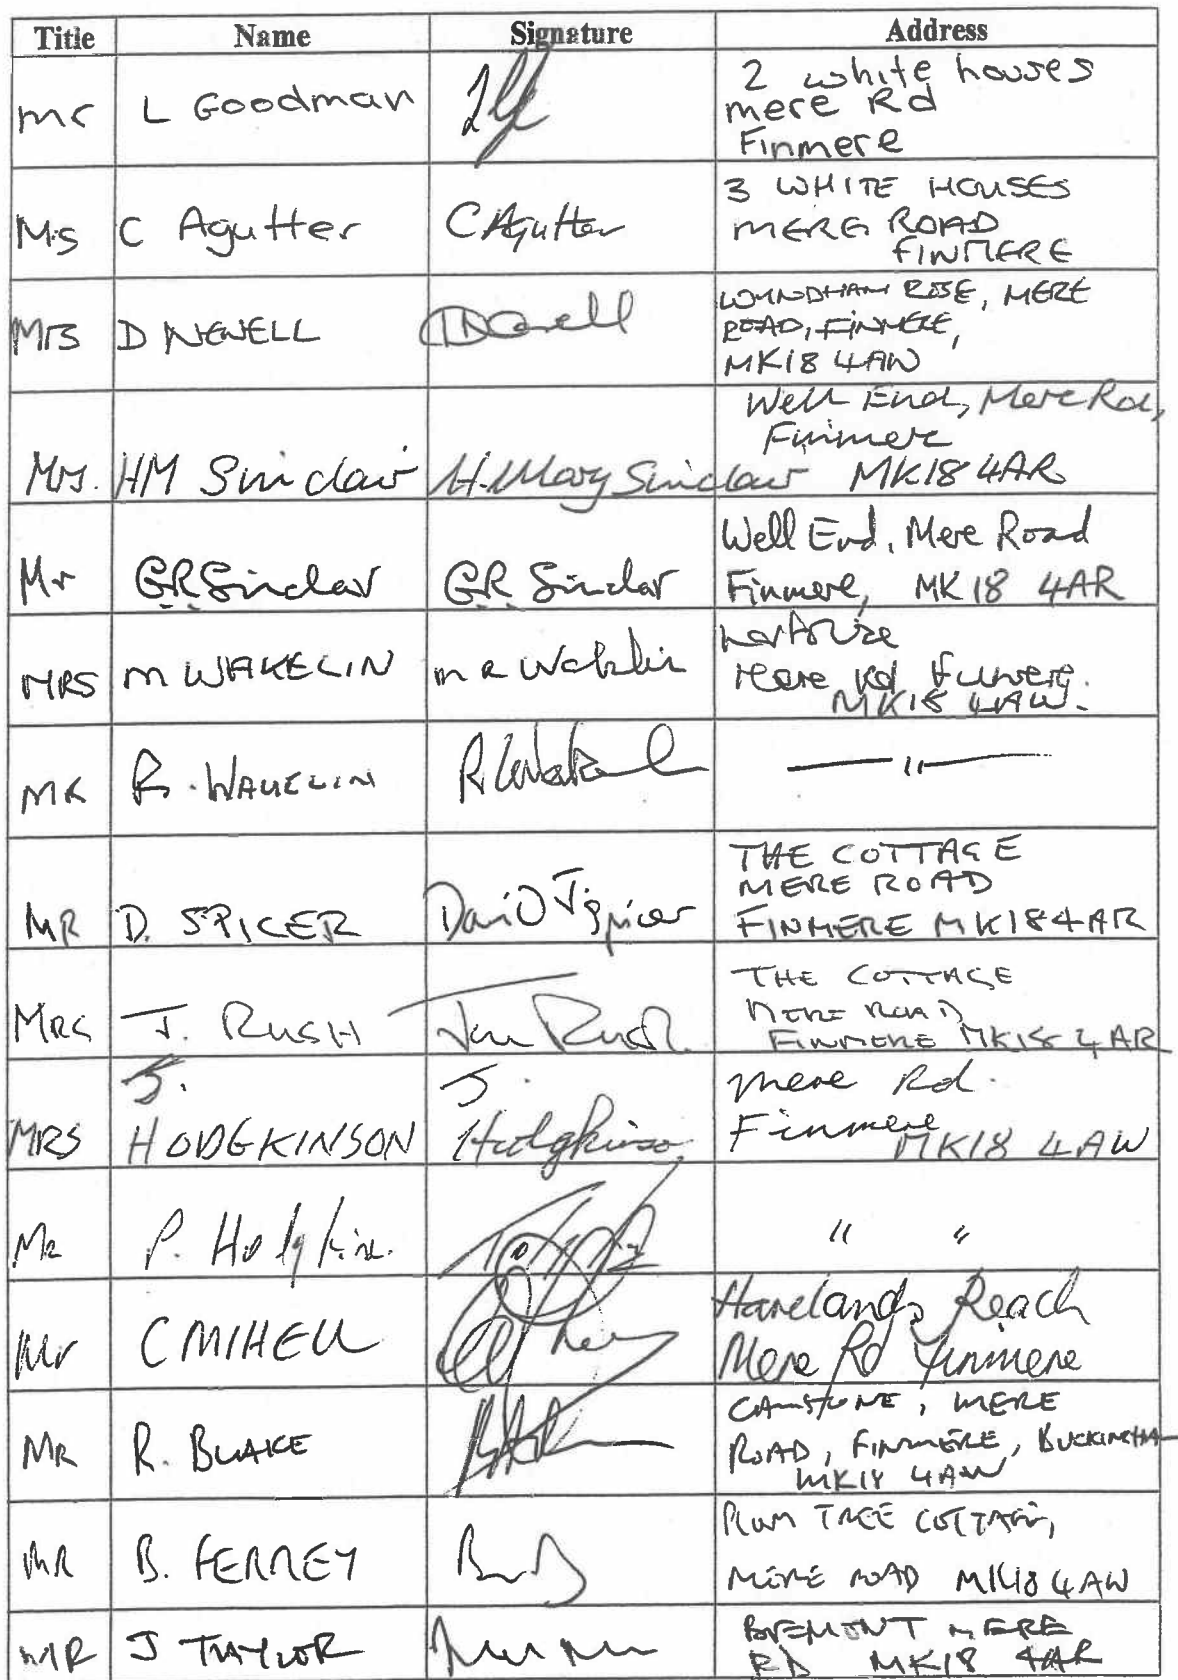 Title Name Signature Address
mr L Goodman 2 white houses
mere Rd
Finmere
Ms C Agutter CAgutter 3 WHITE HOUSES
MERE ROAD
FINMERE
Mrs D NEWELL DNewell WYNDHAM ROSE, MERE
ROAD, FINMERE,
MK18 4AW
Mrs. HM Sinclair H. Mary Sinclair Well End, Mere Rd,
Finmere
MK18 4AR
Mr G.R. Sinclair G.R. Sinclair Well End, Mere Road
Finmere, MK18 4AR
MRS M WAKELIN
Mere Rd Finmere.
MK18 4AW.
MR R. WAKELIN R. Wakel — " —
MR D. SPICER David J Spicer THE COTTAGE
MERE ROAD
FINMERE MK18 4AR
Mrs J. RUSH Jan Rush. THE COTTAGE
MERE ROAD
FINMERE MK18 4AR
MRS J.
HODGKINSON J.
Hodgkinson Mere Rd.
Finmere
MK18 4AW
Mr P. " "
Mr C MIHELL Harelands Reach
Mere Rd Finmere
MR R. BLAKE MERE
ROAD, FINMERE, BUCKINGHAM
MK18 4AW
MR B. FERREY PLUM TREE COTTAGE,
MERE ROAD MK18 4AW
MR J TAYLOR MERE
RD MK18 4AR